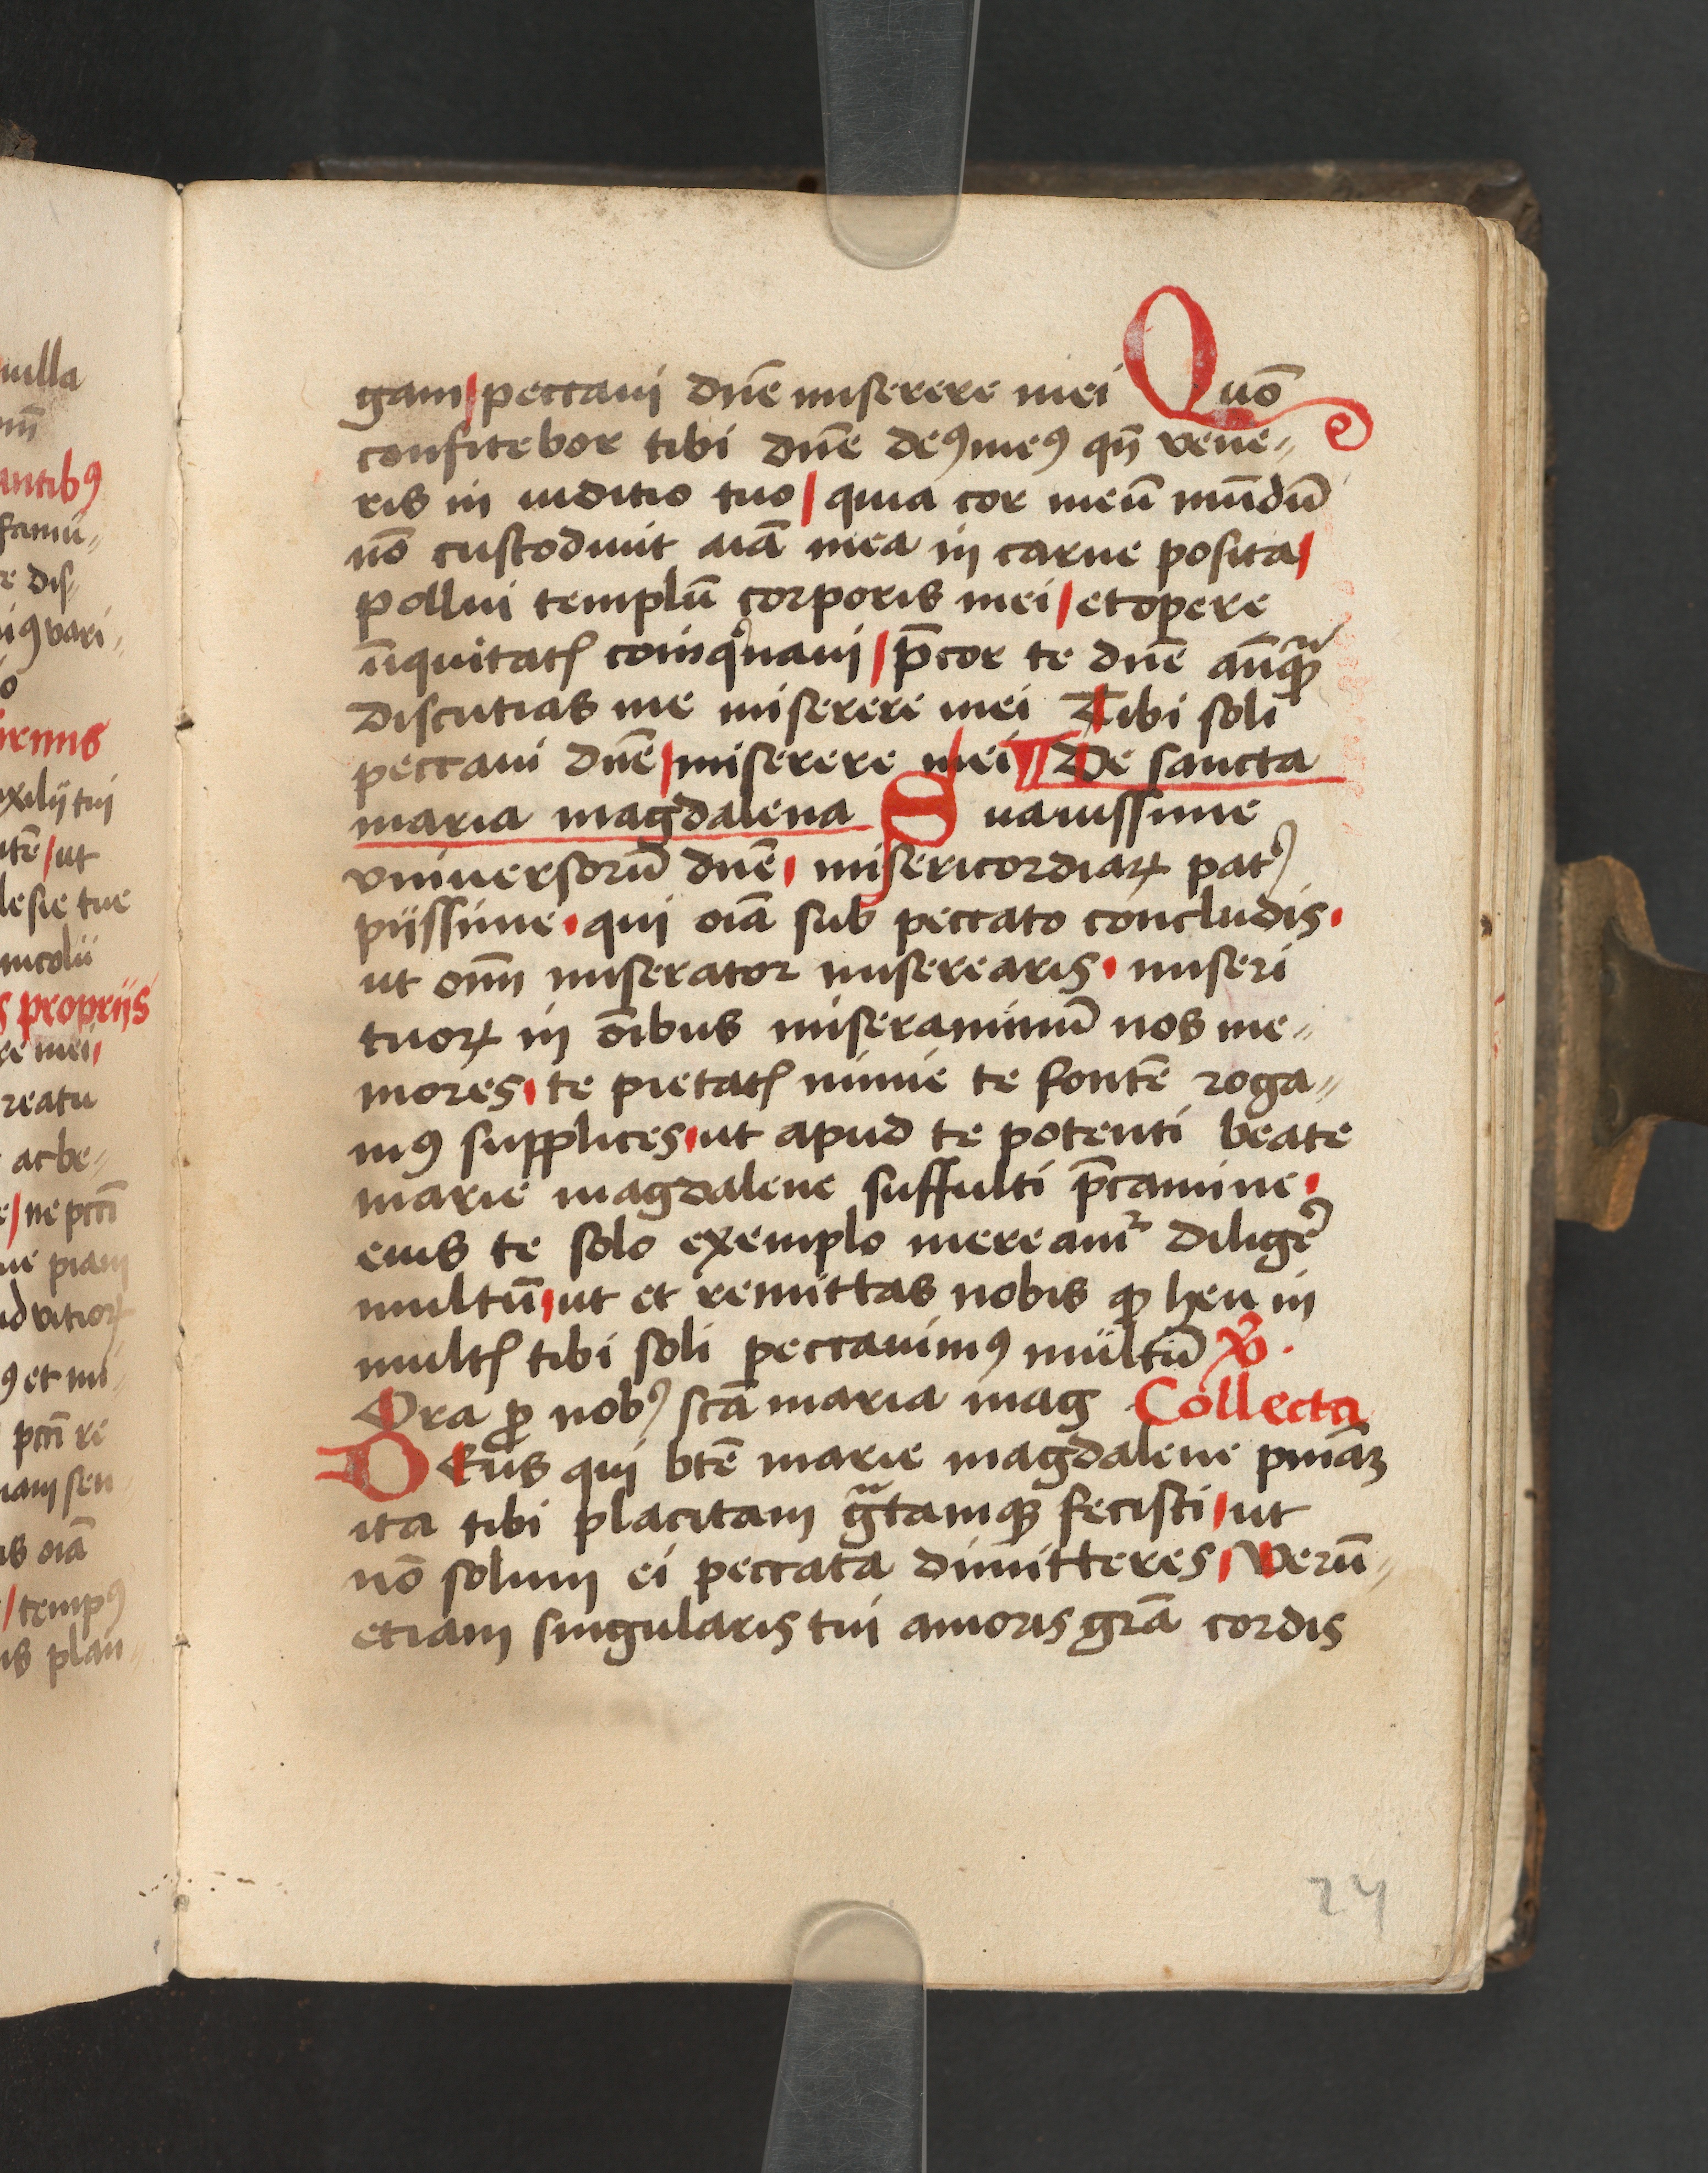 nulla
antibꝰ
famu⸗
e dis⸗
exilij tui
ntē / ut
lesie tue
incolū
s proprijs
re mei
reatu
ac be⸗
e / ne pcci
ne piam
ꝰ et mi⸗
pcci re
as oīa
/ tempꝰ
gam / peccaui dn̄e miserere mei Quō
confitebor tibi dn̄e deꝰ meꝰ qn̄ vene⸗
ris in iuditio tuo / quia cor meū mūdū
nō custodiuit aīa mea in carne posita /
pollui templū corporis mei / et opere
iīquitatꝭ coinqͥnaui / p̄cor te dn̄e an̄qꝫ
discutias me miserere mei Tibi soli
peccaui dn̄e / miserere mei ¶ De sancta
maria magdalena Suauissime
vniuersorū dn̄e misericordiaꝝ patꝰ
pijssime qui oīa sub peccato concludis
ut om̄i miserator miserearis miseri
tuoꝝ in oībus miseraminū nos me⸗
mores te pietatꝭ nimie te fontē roga⸗
mꝰ supplices ut apud te potenti beate
marie magdalene suffulti p̄camine
eius te solo exemplo mereamᷣ diligeꝰ
multū ut et remittas nobis qꝫ heu in
multꝭ tibi soli peccauimꝰ multū ℣.
Ora ꝓ nobꝰ scā maria mag Collecta
DEus qui btē marie magdalene pn̄iāꝫ
ita tibi placitam gͣtamqꝫ fecisti ut
nō solum ei peccata dimitteres Verū⸗
etiam singularis tui amoris grā cordis
24